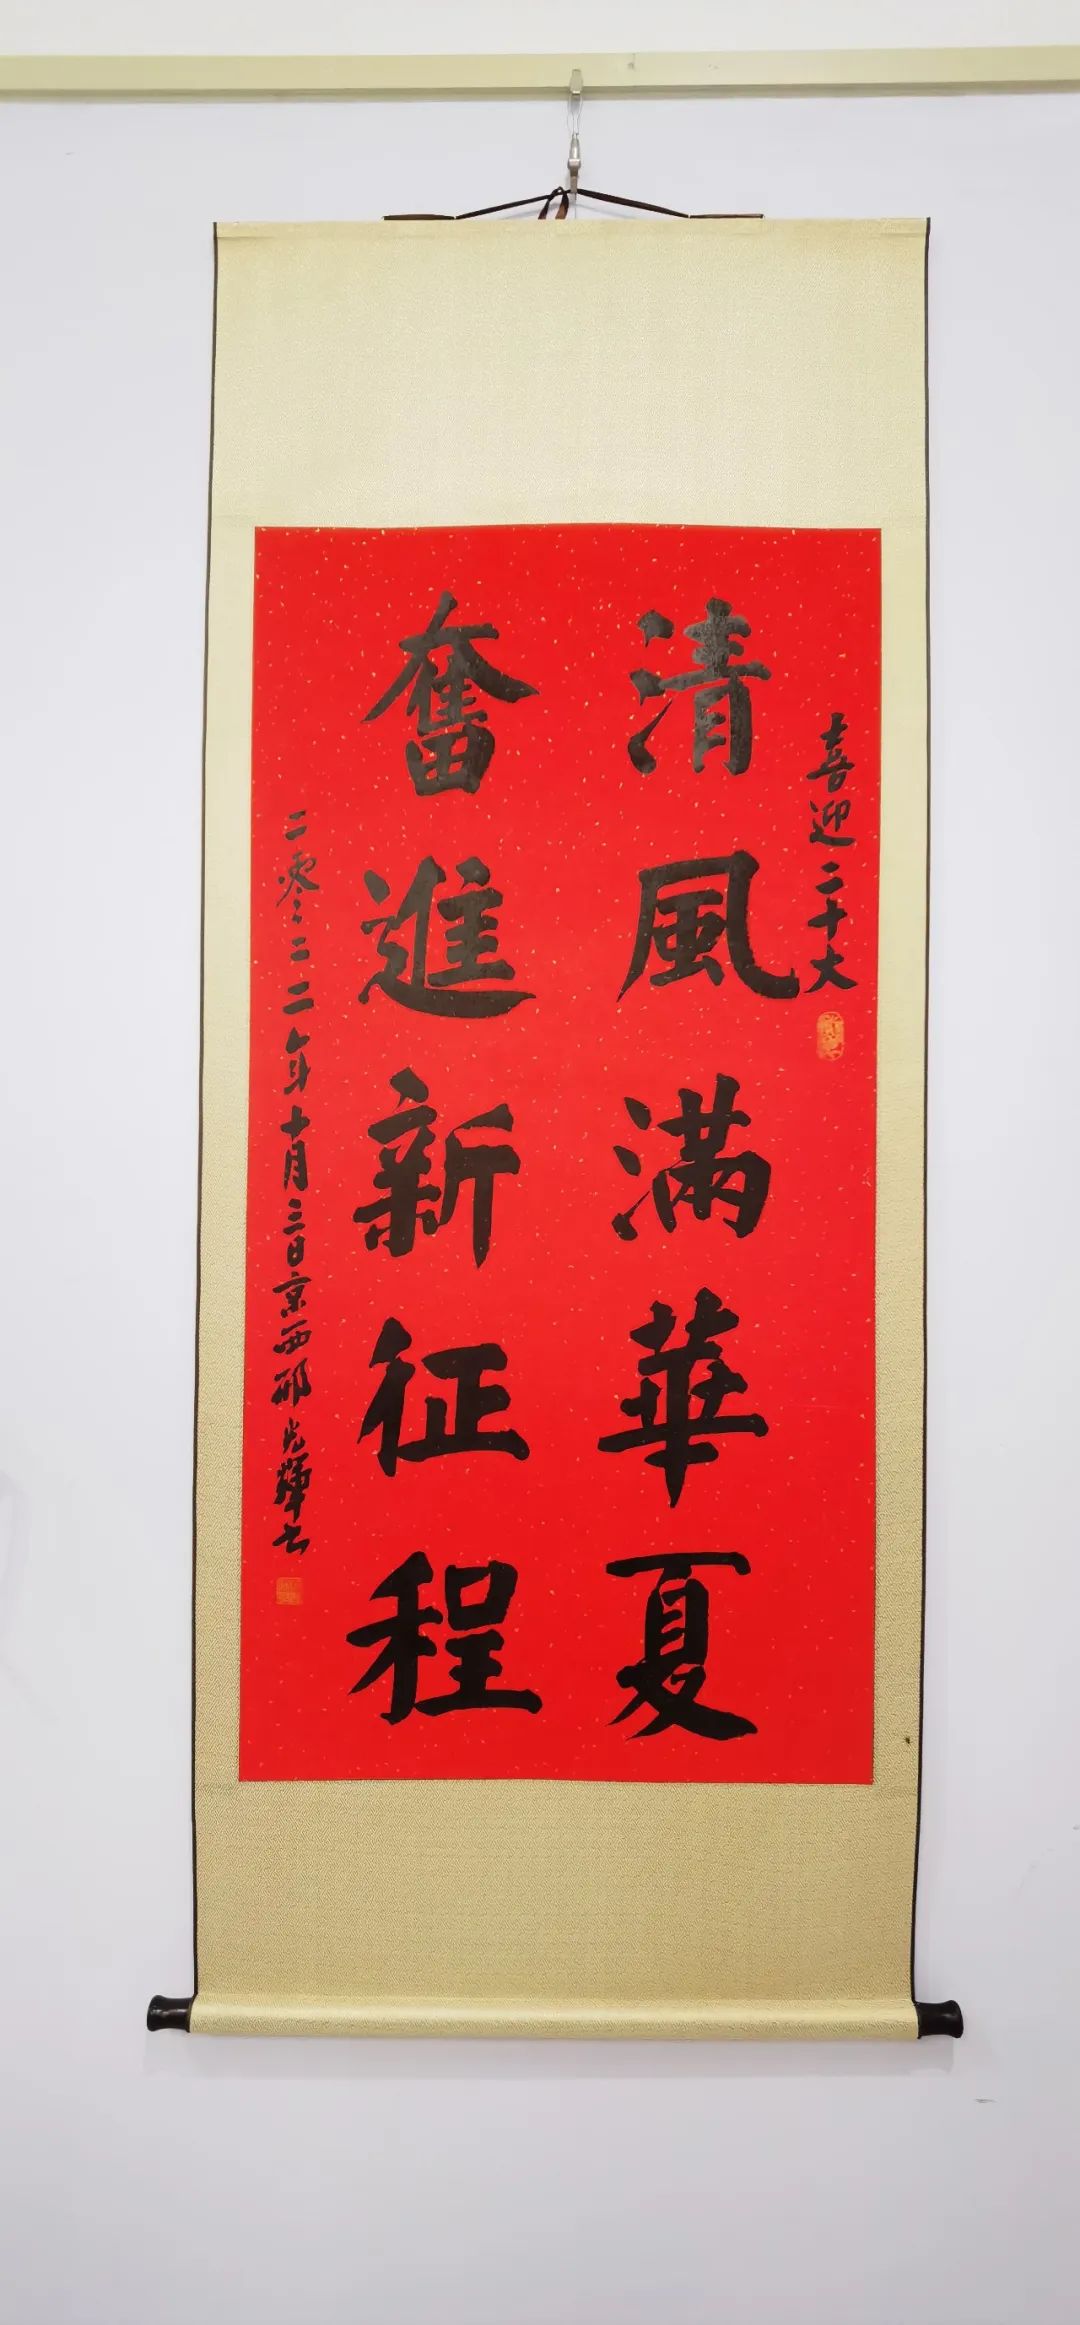 喜迎二十大
清風滿華夏
奮進新征程
二零二二年十月三日京西邢光輝书